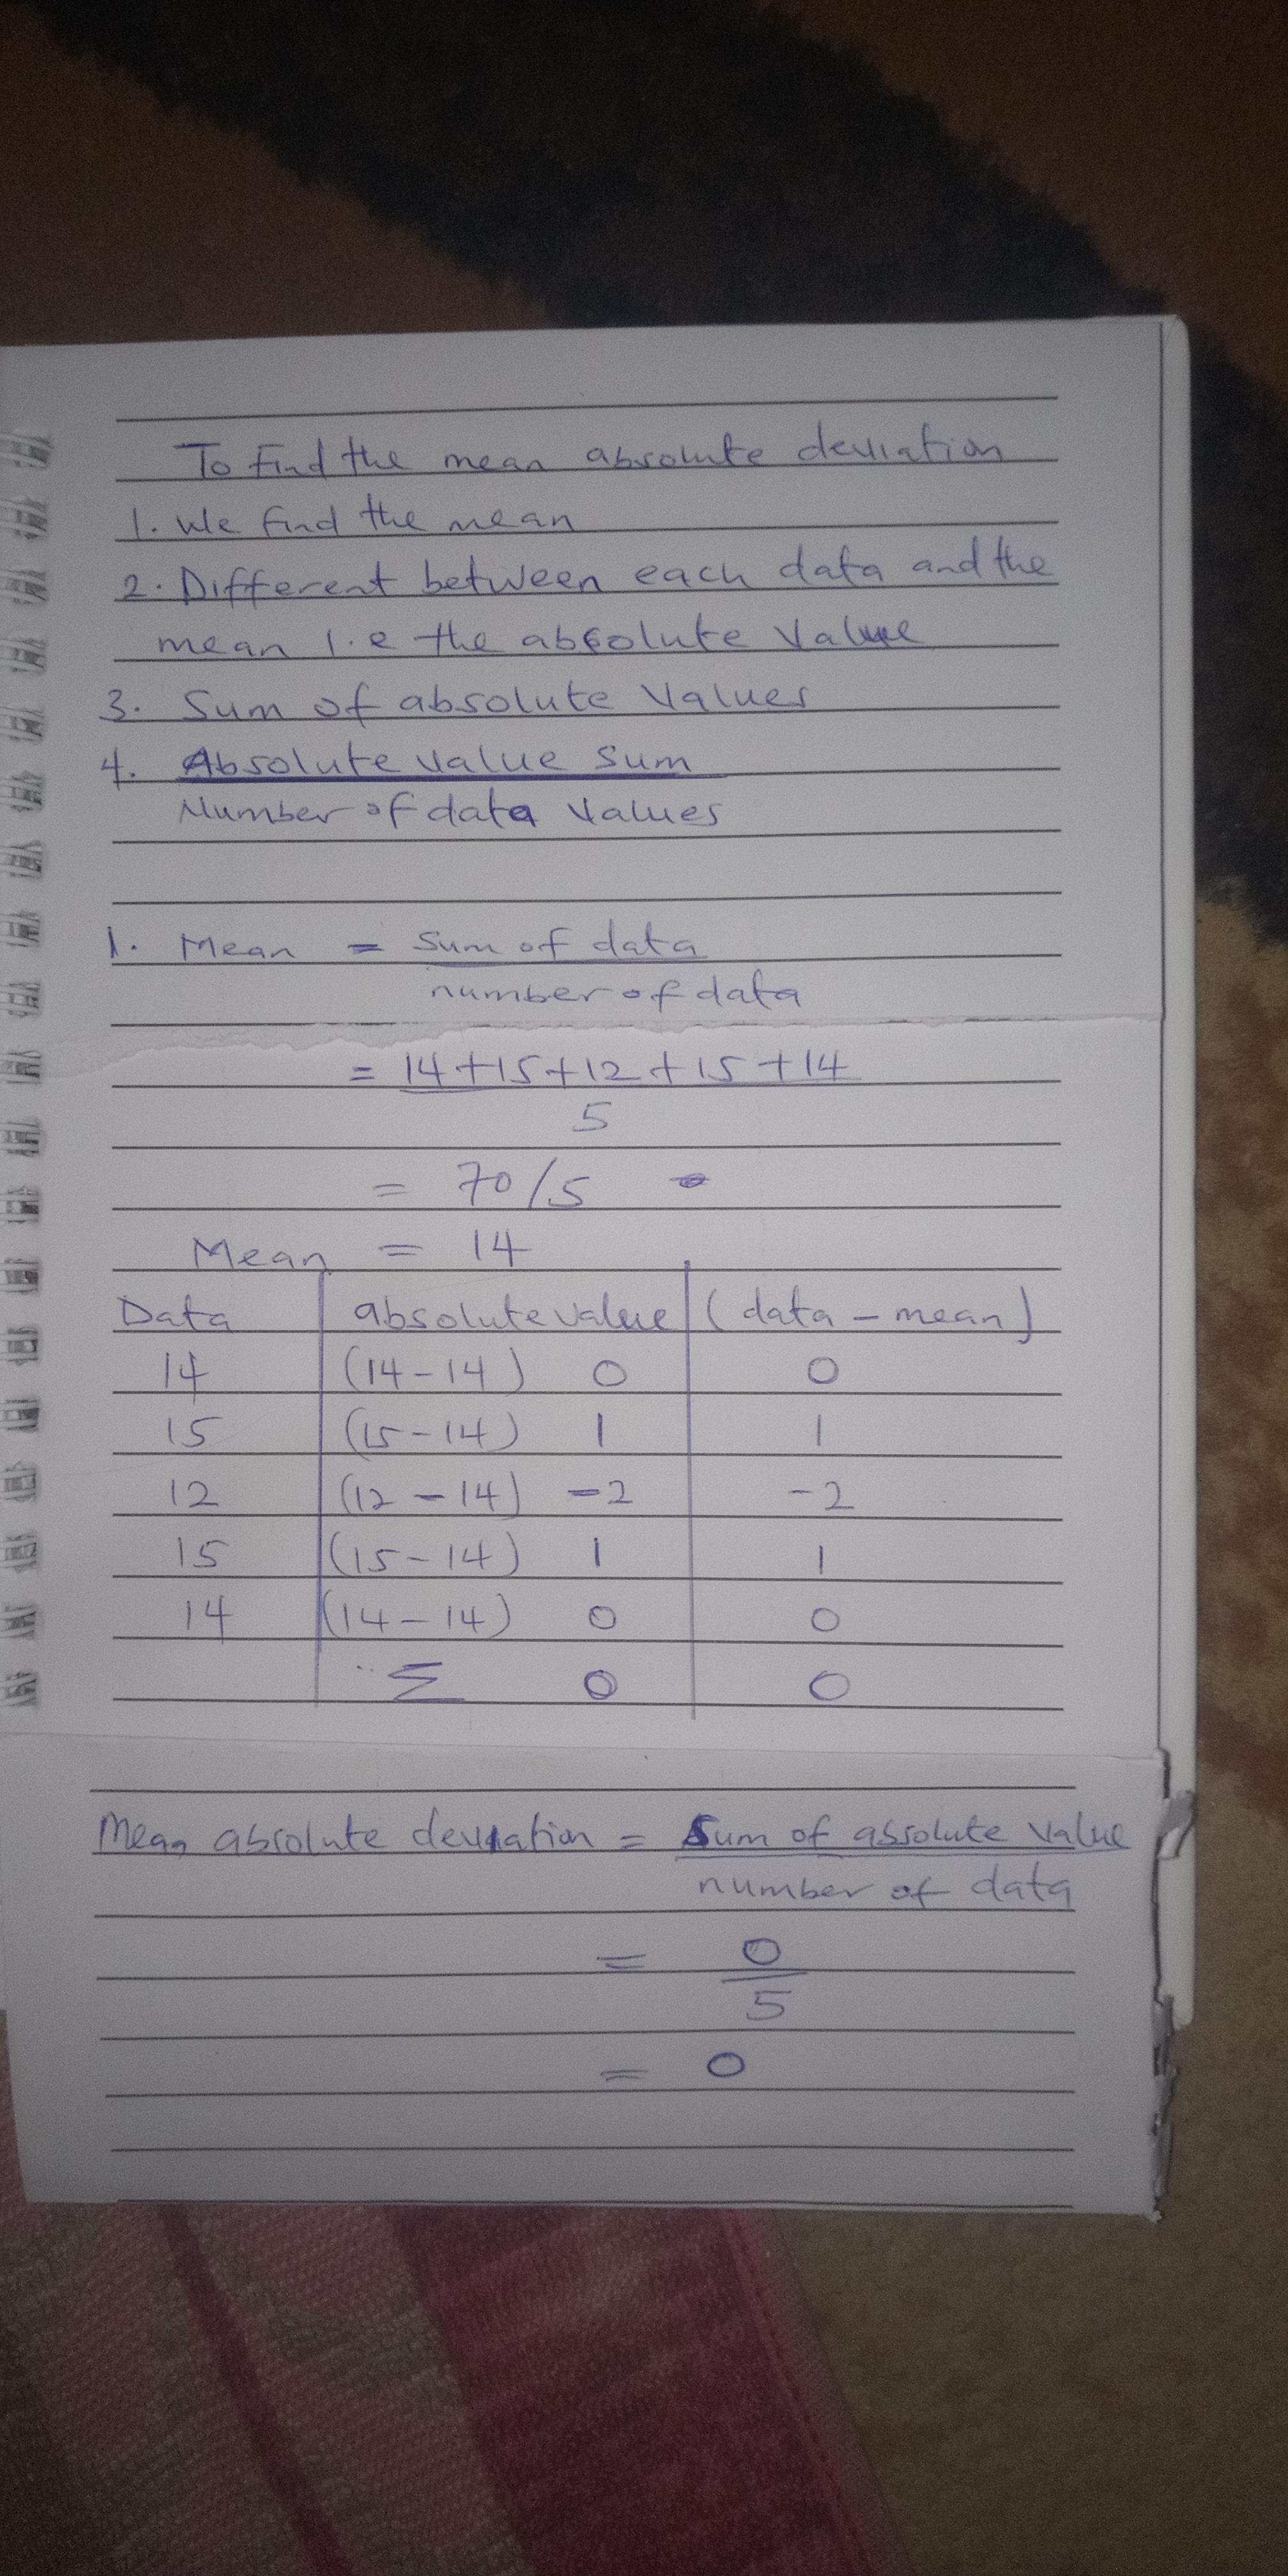 To find the mean absolute deviation
1. We find the mean
2. Different between each data and the
mean i.e the absolute Value
3. Sum of absolute Values
4. Absolute value sum
Number of data values
1. Mean = Sum of data
number of data
= 14+15+12+15+14
5
= 70/5
Mean = 14
Data absolute value (data - mean)
14 (14-14) 0 0
15 (15-14) 1 1
12 (12-14) -2 -2
15 (15-14) 1 1
14 (14-14) 0 0
Σ 0 0
Mean absolute deviation = Sum of absolute value
number of data
= 0
5
= 0